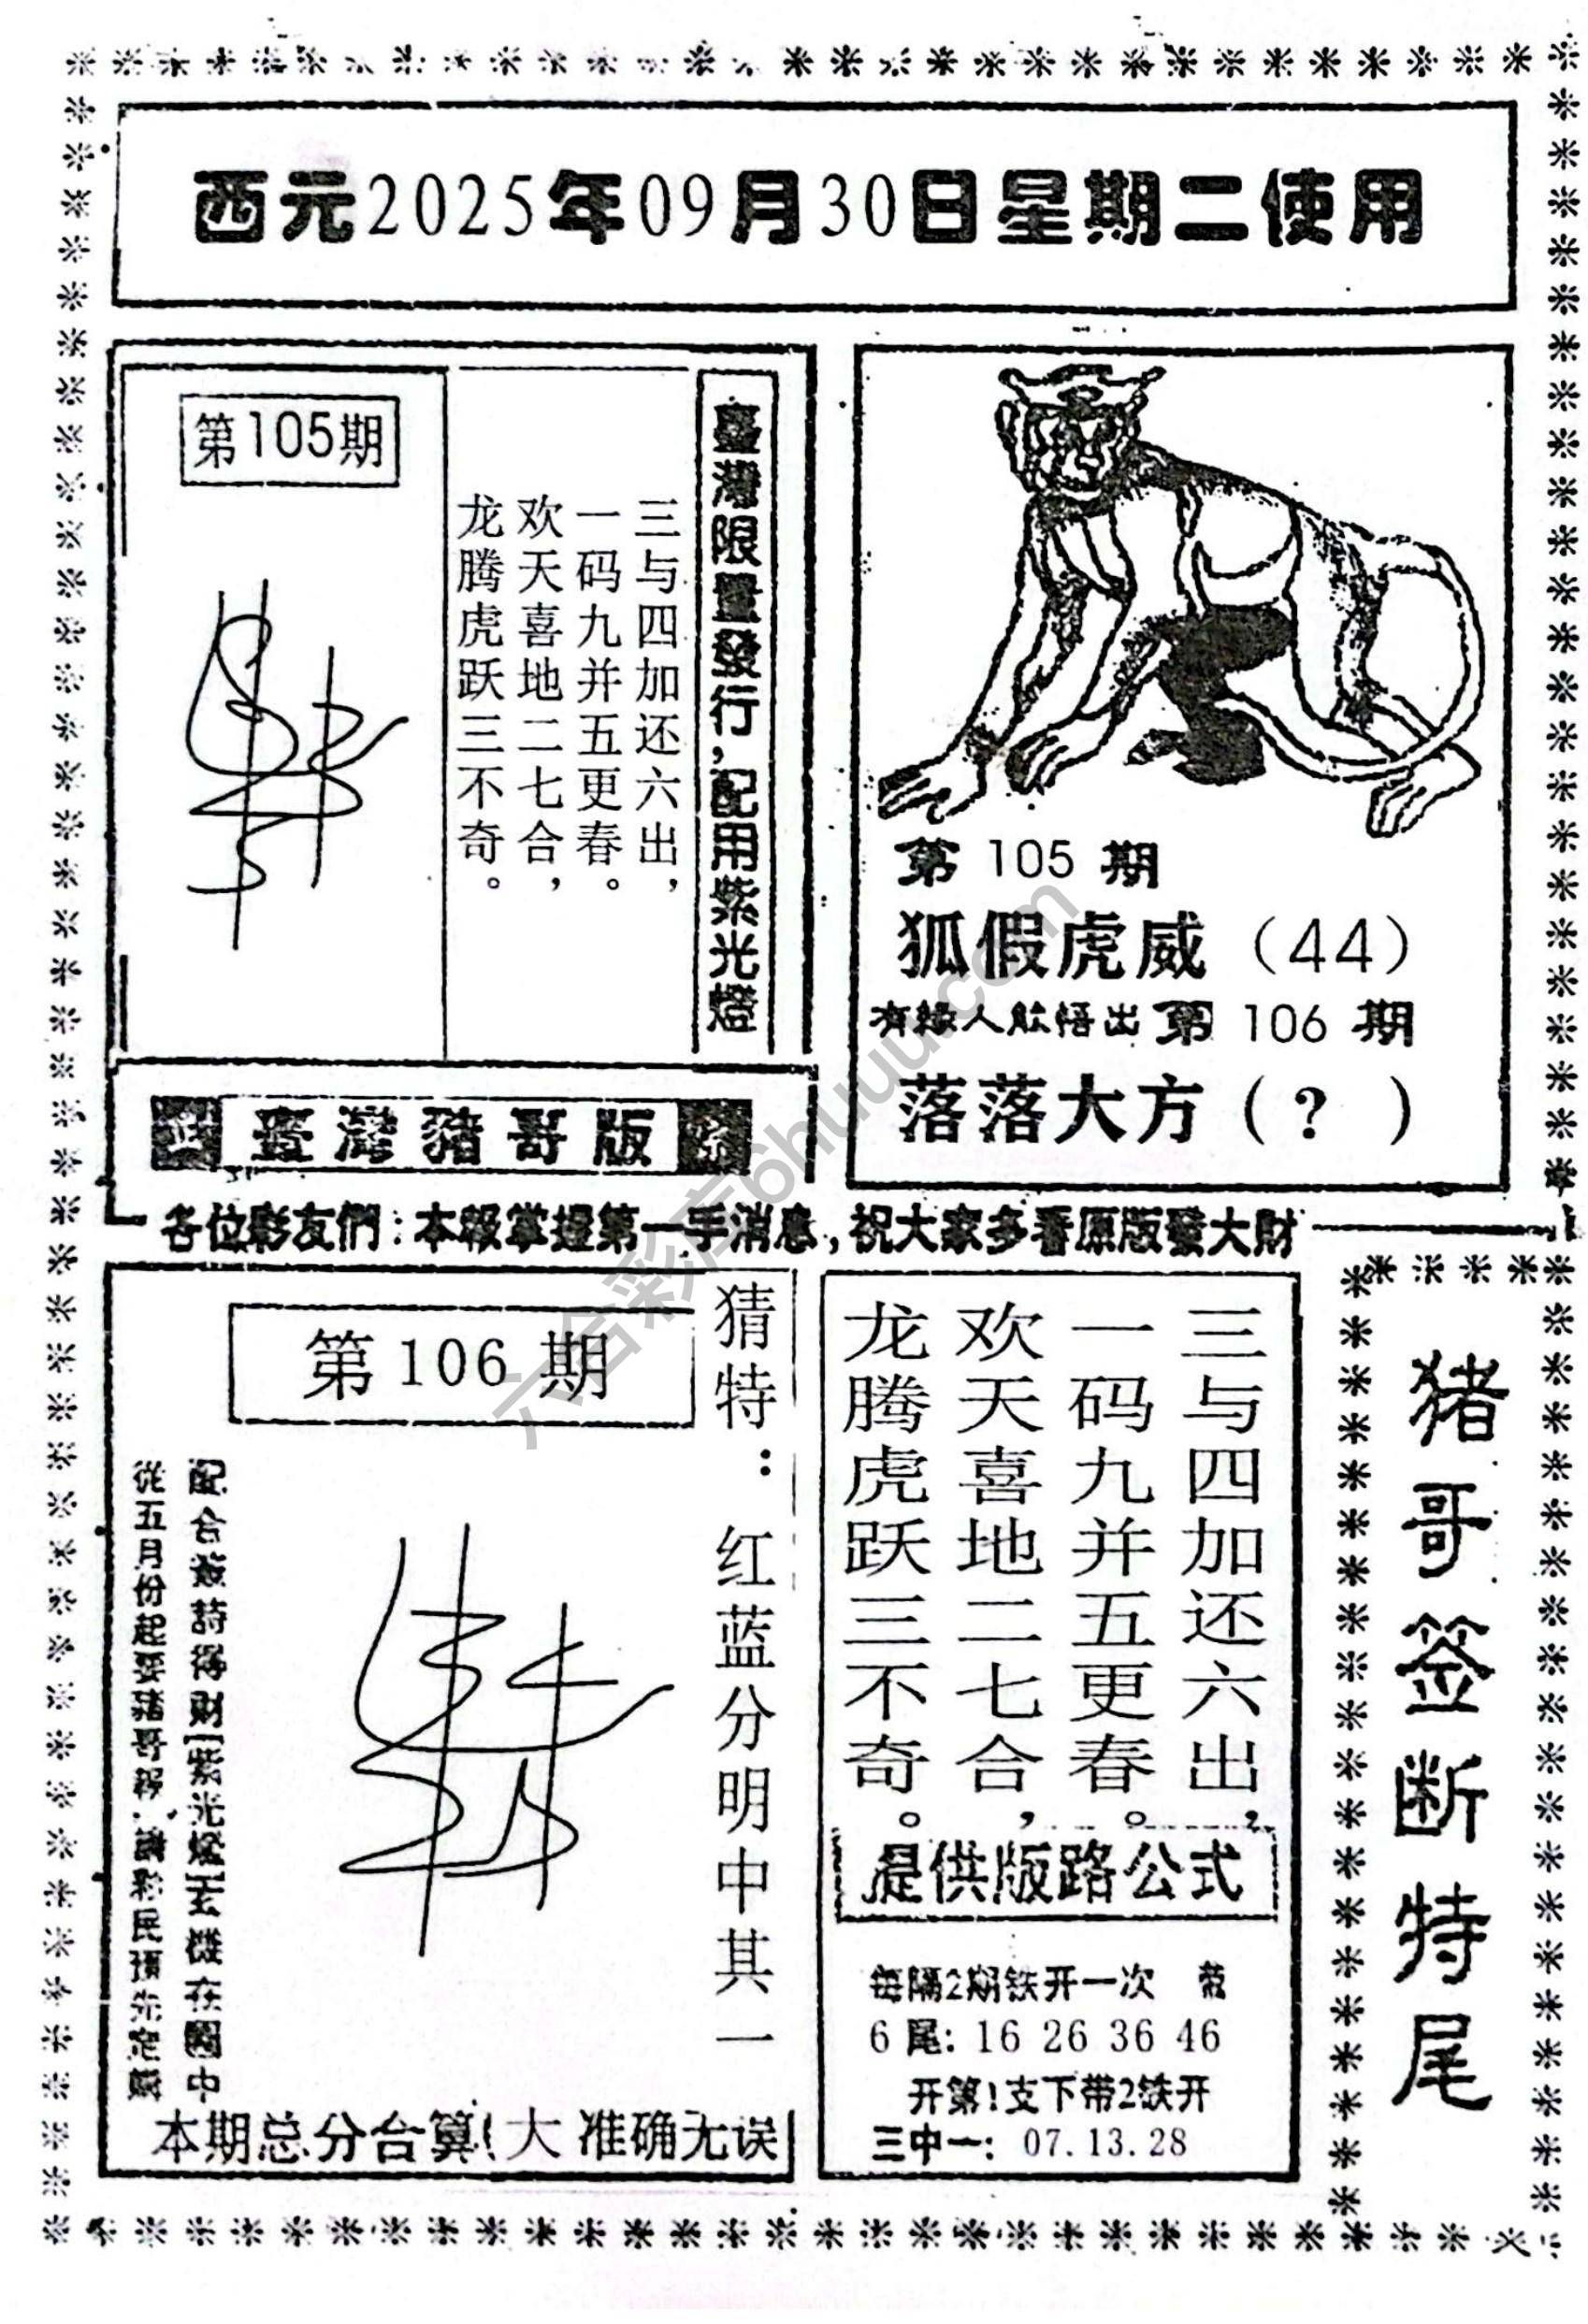 西元2025年09月30日星期二使用
第105期
三与四加还六出，
一码九并五更春。
欢天喜地二七合，
龙腾虎跃三不奇。
臺灣限量發行，配用紫光燈
臺灣豬哥版
第 105 期
狐假虎威（44）
有緣人能悟出 第 106 期
落落大方（？）
各位彩友們：本報掌握第一手消息，祝大家多看原版發大財
第 106 期
猜特：红蓝分明中其一
配合簽詩得財[紫光燈]玄機在圖中
從五月份起要豬哥報，請彩民預先定購
本期总分台算（大 准确无误
三与四加还六出，
一码九并五更春。
欢天喜地二七合，
龙腾虎跃三不奇。
提供版路公式
每隔2期铁开一次 带
6尾：16 26 36 46
开第1支下带2铁开
三中一：07.13.28
猪哥签断特尾
六合彩库6huuu.com